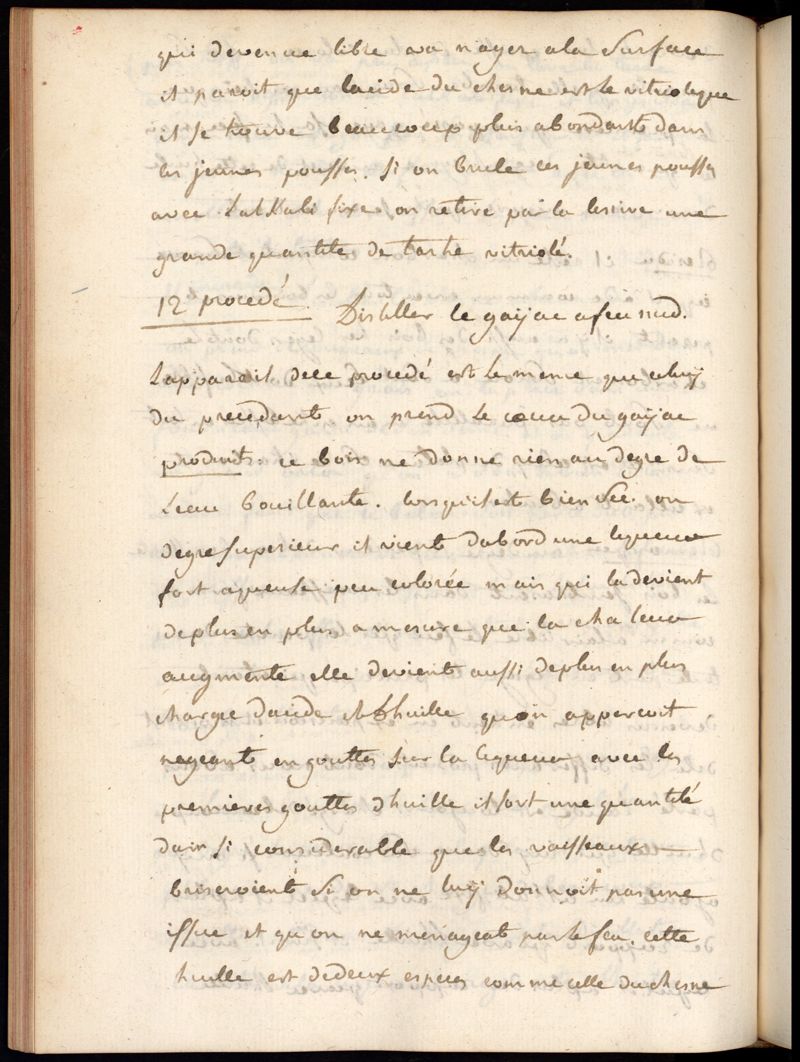 qui devenue libre va nager a la surface
il paroit que lacide du chesne est le vitriolique
il se trouve beaucoup plus abondant dans
les jeunes pousses. si on brule ces jeunes pousses
avec l'alkali fixe on retire par la lessive une
grande quantité de tartre vitriolé.
12 procedé. Distiller le gayac a feu nud.
l'appareil de ce procedé est le meme que celuy
du precedant on prend le cœur du gayac
produits. ce bois ne donne rien au degre de
l'eau bouillante. lorsquil est bien sec. au
degre superieur il vient dabord une liqueur
fort aqueuse peu colorée mais qui la devient
de plus en plus a mesure que la chaleur
augmente elle devient aussi de plus en plus
chargé dacide et dhuille quon apperçoit
nageant en gouttes sur la liqueur avec les
premieres gouttes dhuille il sort une quantité
dair si considerable que les vaisseaux
briseroient si on ne luy donnoit pas une
issue et qu'on ne menageat pas le feu. cette
huille est de deux especes comme celle du chesne